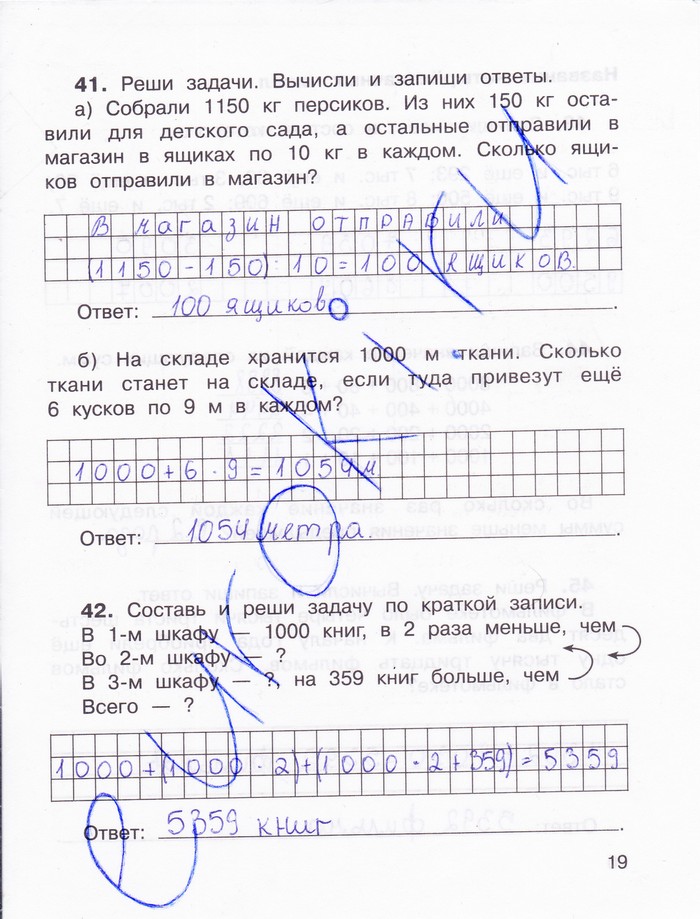 41. Реши задачи. Вычисли и запиши ответы.
а) Собрали 1150 кг персиков. Из них 150 кг оста-
вили для детского сада, а остальные отправили в
магазин в ящиках по 10 кг в каждом. Сколько ящи-
ков отправили в магазин?
В магазин отправили
(1150-150):10=100 ящиков.
Ответ: 100 ящиков.
б) На складе хранится 1000 м ткани. Сколько
ткани станет на складе, если туда привезут ещё
6 кусков по 9 м в каждом?
1000+6·9=1054м
Ответ: 1054 метра.
42. Составь и реши задачу по краткой записи.
В 1-м шкафу — 1000 книг, в 2 раза меньше, чем
Во 2-м шкафу — ?
В 3-м шкафу — ?, на 359 книг больше, чем
Всего — ?
1000+(1000·2)+(1000·2+359)=5359
Ответ: 5359 книг.
19